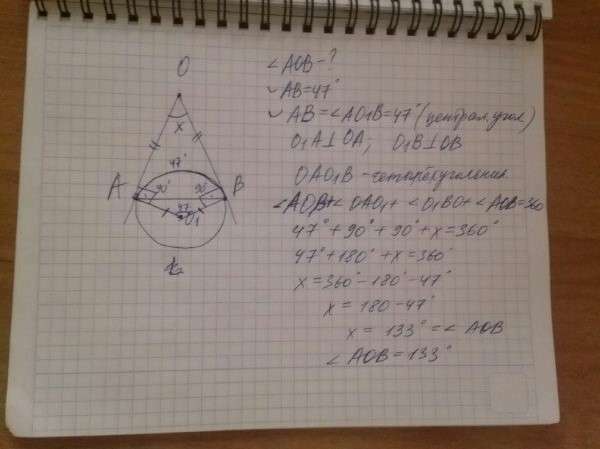 O
x
47°
A
90°
90°
B
47°
O₁
∠AOB-?
◡AB=47°
◡AB=∠AO₁B=47° (централ. угол)
O₁A⊥OA; O₁B⊥OB
OAO₁B - четырёхугольник
∠AOB+∠OAO₁+∠O₁BO+∠AOB=360
47°+90°+90°+x=360°
47°+180°+x=360°
x=360°-180°-47°
x=180-47°
x=133°=∠AOB
∠AOB=133°